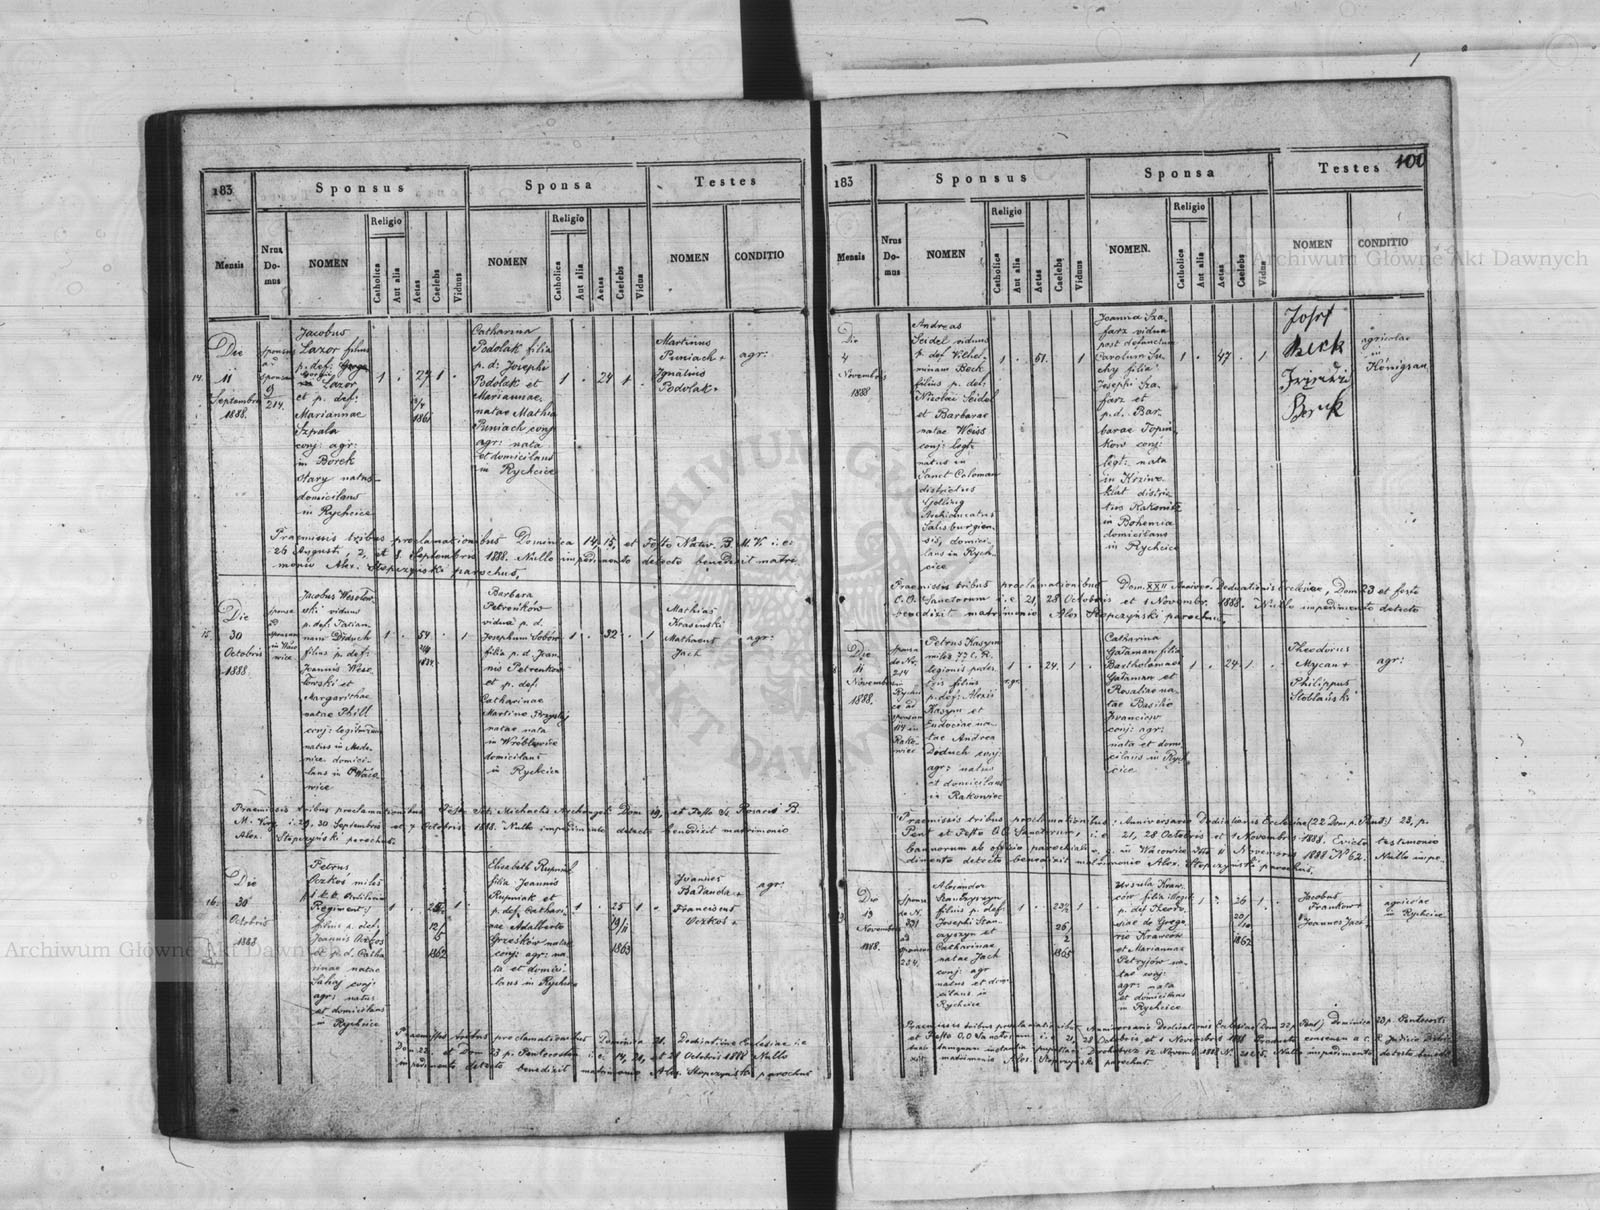 183
Sponsus
Sponsa
Testes
Mensis
Nrus Do-mus
NOMEN
Religio
Catholica
Aut alia
Aetas
Caelebs
Viduus
NOMEN
Religio
Catholica
Aut alia
Aetas
Caelebs
Vidua
NOMEN
CONDITIO
14.
Die
11
Septembris
1888.
Sponsus
ad
Sponsam
214.
Jacobus
Lazor filius
p. def:
Lazor
et p. def:
Mariannae
Szpala
conj: agr:
in Borek
Stary natus
domicilans
in Rychcice
1 . 27 1 .
1861
Catharina
Podolak filia
p. d: Josephi
Podolak et
Mariannae
natae Mathia
Puniach conj
agr: nata
et domicilans
in Rychcice
1 . 24 1 .
Martinus
Puniach +
Ignatius
Podolak +
agr:
Praemissis tribus proclamationibus Dominica 14, 15, et Festo Nativ. B. M. V. i. e:
26 Augusti, 2, et 8. Septembris 1888. Nullo impedimento detecto benedixit matri-
monio Alex. Stopczyński parochus.
15.
Die
30
Octobris
1888.
Jacobus Wesołow-
ski viduus
p. def. Tatian-
nam Diduch
filius p. def:
Joannis Weso-
łowski et
Margarithae
natae Phill
conj: legitimorum
natus in Mede-
nice domici-
lans in Wacowice
1 . 54 . 1
Barbara
Petrenków
vidua p. d.
Josephum Sobów
filia p. d. Joan-
nis Petrenkow
et p. def.
Catharinae
Martino
natae nata
in Wróblowice
domicilans
in Rychcice
1 . 32 . 1
Mathias
Krasinski
Mathaeus
Jach
agr:
Praemissis tribus proclamationibus Festo Sct. Michaelis Archangeli Dom 19, et Festo Rosarii B.
M. Virg. i. 29, 30 Septembris et 7 Octobris 1888. Nullo impedimento detecto benedixit matrimonio
Alex. Stopczyński parochus.
16.
Die
30
Octobris
1888
Petrus
Oczkoś miles
Regiment:
filius p. def.
Joannis Oczkos
et p. d. Catha
rinae natae
conj:
agr: natus
et domicilans
in Rychcice
1 . 1 .
12/5
1862
Elisabeth Rupniak
filia Joannis
Rupniak et
p. def. Cathari-
nae Adalberto
Grzesków natae
conj: agr: na-
ta et domici-
lans in Rychcice
1 . 25 1 .
19/11
1863
Joannes
Bałanda +
Franciscus
Oczkos +
agr:
Praemissis tribus proclamationibus Dominica 21. Dedicatione Ecclesiae i. e
Dom 22. et Dom 23 p. Pentecosten i. e. 14, 21, et 28 Octobris 1888 Nullo
impedimento detecto benedixit matrimonio Alex. Stopczyński parochus
100
183
Sponsus
Sponsa
Testes
Mensis
Nrus Do-mus
NOMEN
Religio
Catholica
Aut alia
Aetas
Caelebs
Viduus
NOMEN.
Religio
Catholica
Aut alia
Aetas
Caelebs
Vidua
NOMEN
CONDITIO
Die
4
Novembris
1888
Andreas
Seidel viduus
p. def Vilhel-
minam Beck
filius p. def:
Nicolai Seidel
et Barbarae
natae Weiss
conj: legt.
natus in
Sanct Coloman
districtus
Golling
Archiducatus
Salisburgien-
sis, domici-
lans in Rych-
cice
1 . 61. . 1
Joanna Sza-
farz vidua
post defunctum
Carolum Su-
chy filia
Josephi Sza-
farz et
p. d. Bar-
barae Topin-
kow conj:
legt: nata
in
klat distric-
tus Rakonitz
in Bohemia
domicilans
in Rychcice
1 . 47 . 1
Josef
Beck
Beck
agricolae
in
Königsau
Praemissis tribus proclamationibus Dom. XXII Anniver. Dedicationis Ecclesiae, Dom 23 et festo
O. O. Sanctorum i. e 21, 28 Octobris et 1 Novembr. 1888. Nullo impedimento detecto
benedixit matrimonio Alex Stopczyński parochus.
Die
11
Novembris
1888.
Petrus Kasym
miles 77 C. R.
legionis pedes-
tris filius
p. def: Alexii
Kasym et
Eudociae na-
tae Andrea
Doduch conj
agr: natus
et domicilans
in Rakowiec
1 . 24. 1 .
r. gr.
Catharina
Gałaman filia
Bartholomaei
Gałaman et
Rosaliae na-
tae Basilio
Iwanciow
conj: agr:
nata et domi
cilans in Rych
cice
1 . 24 1 .
Theodorus
Mycan +
Philippus
Steblański
agr:
Praemissis tribus proclamationibus: Anniversario Dedicationis Ecclesiae (22 Dom p. Pent:) 23, p.
Pent et Festo O. O. Sanctorum, i. e 21, 28 Octobris et 1 Novembris 1888. Evicto testimonio
bannorum ab officio parochiali g. g. in Wacowice dtto 11 Novembris 1888 N 62. Nullo impe-
dimento detecto benedixit matrimonio Alex. Stopczyński parochus.
Die
13
Novembris
1888.
Sponsi
de N.
331
ad
sponsam
234.
Alexander
Stanczyszyn
filius p. def.
Josephi Stan-
czyszyn et
Catharinae
natae Jach
conj: agr
natus et domi-
cilans in
Rychcice
1 . 23½ 1 .
26/2
1865
Ursula Kraw-
ców filia illegit
p. def Theodo-
siae de Grego-
rio Krawców
et Mariannae
Petryjów na-
tae conj:
agr: nata
et domicilans
in Rychcice
1 . 26 1 .
20/10
1862
Jacobus
Frankow +
Joannes Jach +
agricolae
in Rychcice
Praemissis tribus proclamationibus Anniversario Dedicationis Ecclesiae (Dom 22 p. Pent.) Dominica 23 p. Pentecosten
et Festo O. O Sanctorum i. e 21, 28 Octobris et 1 Novembris 1888 Producto consensu a C. R. Judicio
tamquam instantia pupillari Drohobycz 12 Novemb 1888 N. Nullo impedimento detecto benedi
xit matrimonio Alex. Stopczyński parochus.
Archiwum Główne Akt Dawnych
Archiwum Główne Akt Dawnych
ARCHIWUM GŁÓWNE AKT DAWNYCH